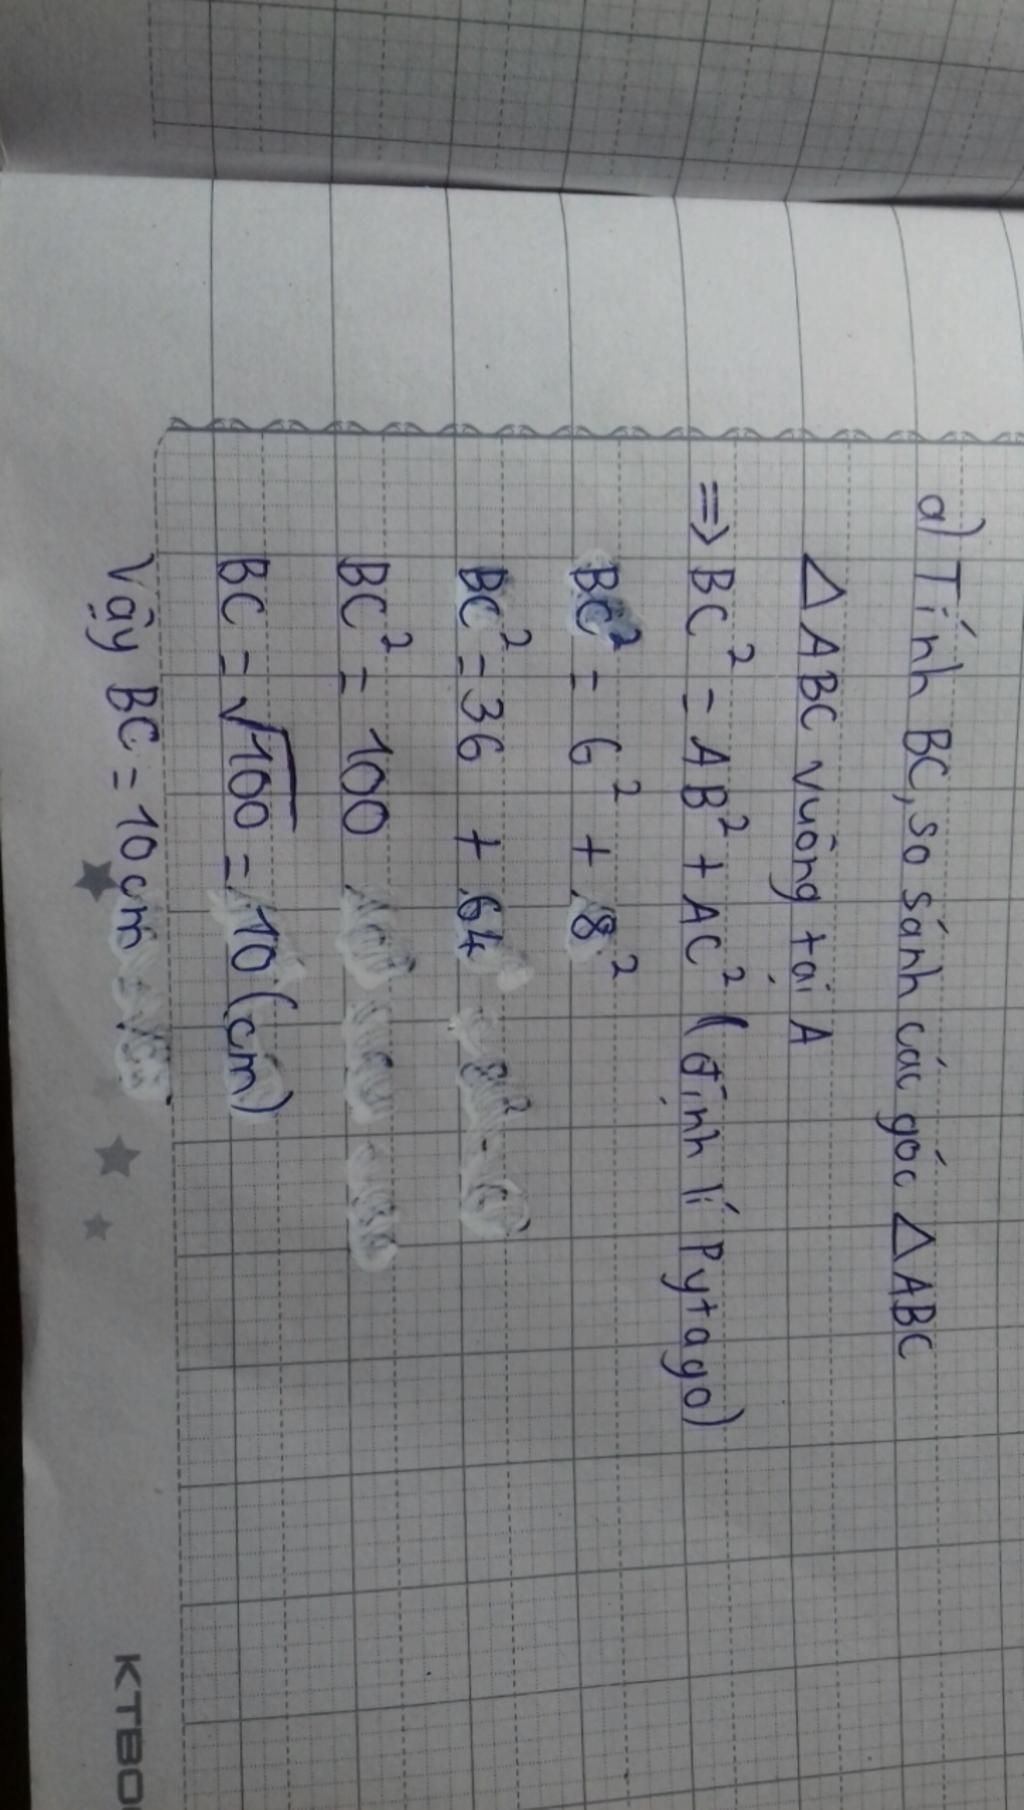 a) Tính BC, so sánh các góc △ABC
△ABC vuông tại A
=> BC² = AB² + AC² (định lí Pytago)
BC² = 6² + 8²
BC² = 36 + 64
BC² = 100
BC = √100 = 10 (cm)
Vậy BC = 10 cm
KTBO